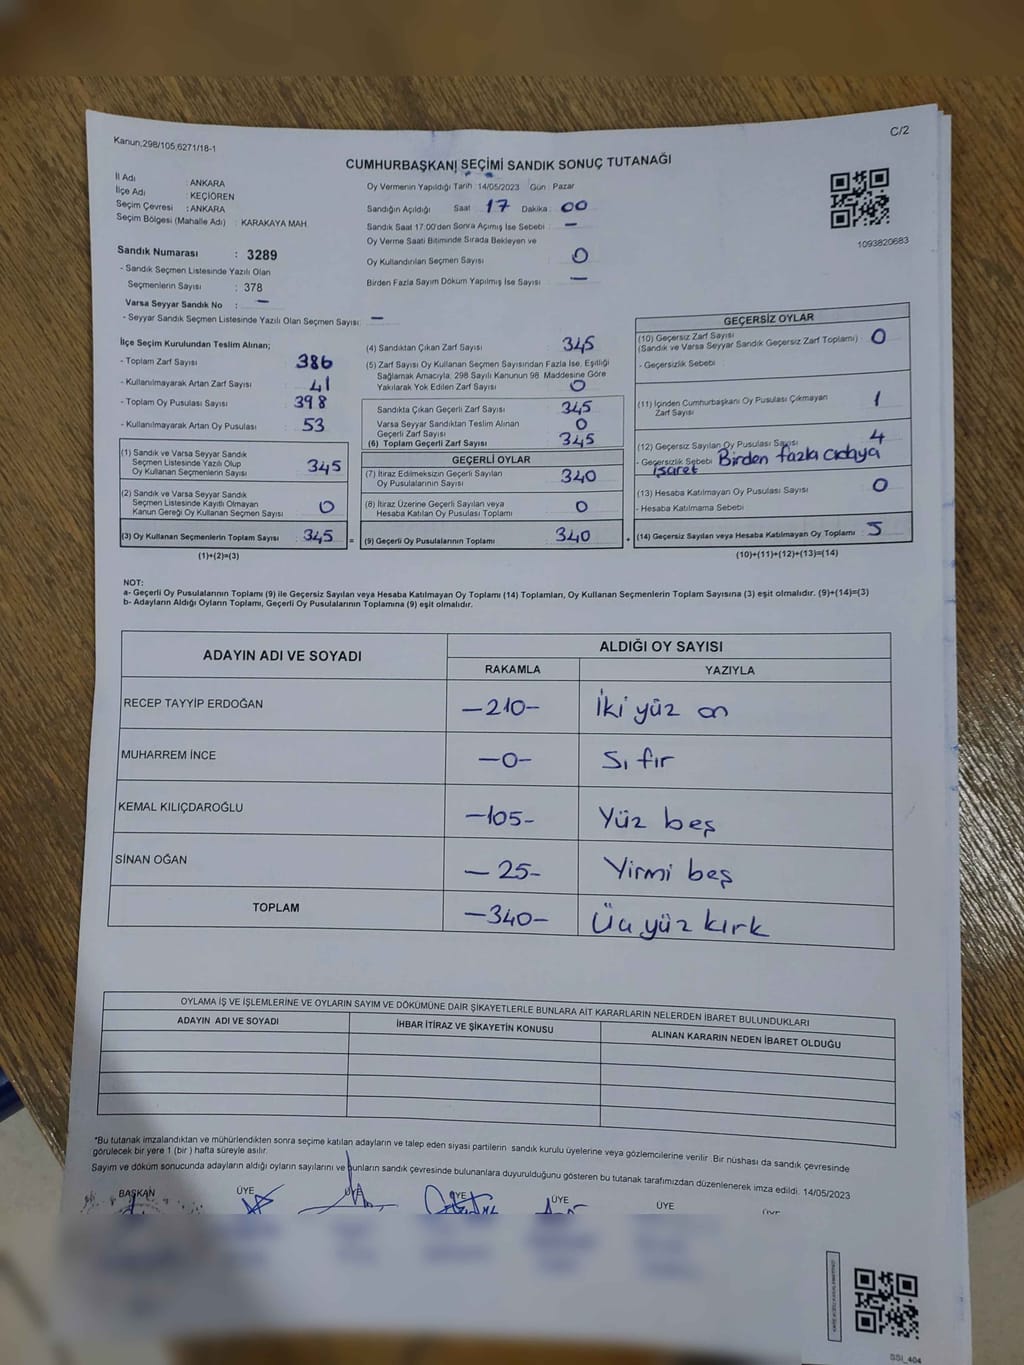 Kanun;298/105,6271/18-1
C/2
CUMHURBAŞKANI SEÇİMİ SANDIK SONUÇ TUTANAĞI
İl Adı : ANKARA
İlçe Adı : KEÇİÖREN
Seçim Çevresi : ANKARA
Seçim Bölgesi (Mahalle Adı) : KARAKAYA MAH.
Sandık Numarası : 3289
- Sandık Seçmen Listesinde Yazılı Olan
Seçmenlerin Sayısı : 378
Varsa Seyyar Sandık No : —
- Seyyar Sandık Seçmen Listesinde Yazılı Olan Seçmen Sayısı: —
Oy Vermenin Yapıldığı Tarih : 14/05/2023 Gün : Pazar
Sandığın Açıldığı Saat 17 Dakika : 00
Sandık Saat 17.00'den Sonra Açımış İse Sebebi : —
Oy Verme Saati Bitiminde Sırada Bekleyen ve
Oy Kullandırılan Seçmen Sayısı : 0
Birden Fazla Sayım Döküm Yapılmış İse Sayısı : —
1093820683
İlçe Seçim Kurulundan Teslim Alınan;
- Toplam Zarf Sayısı : 386
- Kullanılmayarak Artan Zarf Sayısı : 41
- Toplam Oy Pusulası Sayısı : 398
- Kullanılmayarak Artan Oy Pusulası : 53
(1) Sandık ve Varsa Seyyar Sandık
Seçmen Listesinde Yazılı Olup
Oy Kullanan Seçmenlerin Sayısı : 345
(2) Sandık ve Varsa Seyyar Sandık
Seçmen Listesinde Kayıtlı Olmayan
Kanun Gereği Oy Kullanan Seçmen Sayısı : 0
(3) Oy Kullanan Seçmenlerin Toplam Sayısı : 345 =
(1)+(2)=(3)
(4) Sandıktan Çıkan Zarf Sayısı : 345
(5) Zarf Sayısı Oy Kullanan Seçmen Sayısından Fazla İse, Eşitliği
Sağlamak Amacıyla, 298 Sayılı Kanunun 98. Maddesine Göre
Yakılarak Yok Edilen Zarf Sayısı : 0
Sandıkta Çıkan Geçerli Zarf Sayısı : 345
Varsa Seyyar Sandıktan Teslim Alınan
Geçerli Zarf Sayısı : 0
(6) Toplam Geçerli Zarf Sayısı : 345
GEÇERLİ OYLAR
(7) İtiraz Edilmeksizin Geçerli Sayılan
Oy Pusulalarının Sayısı : 340
(8) İtiraz Üzerine Geçerli Sayılan veya
Hesaba Katılan Oy Pusulası Toplamı : 0
(9) Geçerli Oy Pusulalarının Toplamı : 340 +
GEÇERSİZ OYLAR
(10) Geçersiz Zarf Sayısı
(Sandık ve Varsa Seyyar Sandık Geçersiz Zarf Toplamı) : 0
- Geçersizlik Sebebi :
(11) İçinden Cumhurbaşkanı Oy Pusulası Çıkmayan
Zarf Sayısı : 1
(12) Geçersiz Sayılan Oy Pusulası Sayısı : 4
- Geçersizlik Sebebi : Birden fazla adaya
işaret
(13) Hesaba Katılmayan Oy Pusulası Sayısı : 0
- Hesaba Katılmama Sebebi :
(14) Geçersiz Sayılan veya Hesaba Katılmayan Oy Toplamı : 5
(10)+(11)+(12)+(13)=(14)
NOT:
a- Geçerli Oy Pusulalarının Toplamı (9) ile Geçersiz Sayılan veya Hesaba Katılmayan Oy Toplamı (14) Toplamları, Oy Kullanan Seçmenlerin Toplam Sayısına (3) eşit olmalıdır. (9)+(14)=(3)
b- Adayların Aldığı Oyların Toplamı, Geçerli Oy Pusulalarının Toplamına (9) eşit olmalıdır.
ADAYIN ADI VE SOYADI ALDIĞI OY SAYISI
RAKAMLA YAZIYLA
RECEP TAYYİP ERDOĞAN —210— İki yüz on
MUHARREM İNCE —0— Sıfır
KEMAL KILIÇDAROĞLU —105— Yüz beş
SİNAN OĞAN —25— Yirmi beş
TOPLAM —340— Üç yüz kırk
OYLAMA İŞ VE İŞLEMLERİNE VE OYLARIN SAYIM VE DÖKÜMÜNE DAİR ŞİKAYETLERLE BUNLARA AİT KARARLARIN NELERDEN İBARET BULUNDUKLARI
ADAYIN ADI VE SOYADI İHBAR İTİRAZ VE ŞİKAYETİN KONUSU ALINAN KARARIN NEDEN İBARET OLDUĞU
*Bu tutanak imzalandıktan ve mühürlendikten sonra seçime katılan adayların ve talep eden siyasi partilerin sandık kurulu üyelerine veya gözlemcilerine verilir. Bir nüshası da sandık çevresinde
görülecek bir yere 1 (bir ) hafta süreyle asılır.
Sayım ve döküm sonucunda adayların aldığı oyların sayılarını ve bunların sandık çevresinde bulunanlara duyurulduğunu gösteren bu tutanak tarafımızdan düzenlenerek imza edildi. 14/05/2023
BAŞKAN ÜYE ÜYE ÜYE ÜYE ÜYE
SSI_404